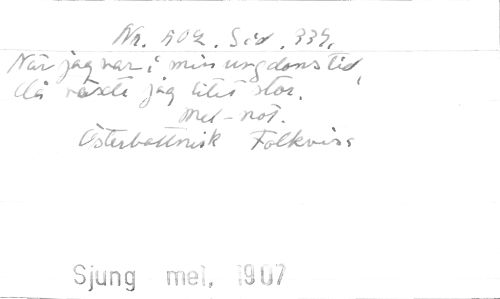 Nr. 402. Sid. 339.
När jag var i min ungdomstid,
då växte jag litet stor.
Mel-not.
Österbottnisk Folkvisa
Sjung mel, 1907